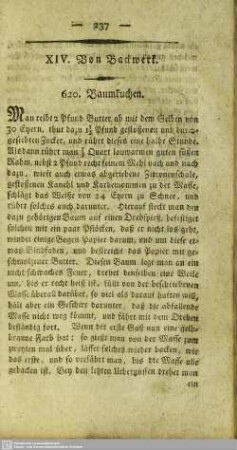 237
XIV. Von Backwerk.
620. Baumkuchen.
Man reibt 2 Pfund Butter, ab mit dem Gelben von
30 Eyern, thut dazu 1½ Pfund gestoßenen und durch-
gesiebten Zucker, und rühret dieses eine halbe Stunde.
Alsdann rührt man ¾ Quart lauwarmen guten süßen
Rahm, nebst 2 Pfund recht feinem Mehl nach und nach
dazu, wirft auch etwas abgeriebene Zitronenschale,
gestoßenen Kanehl und Kardemommen zu der Masse,
schlägt das Weiße von 24 Eyern zu Schnee, und
rühret solches auch darunter. Hierauf steckt man den
dazu gehörigen Baum auf einen Drehspieß, befestiget
solchen mit ein paar Pflöcken, daß er nicht los geht,
windet einige Bogen Papier darum, und um diese et-
was Bindfaden, und bestreicht das Papier mit ge-
schmolzener Butter. Diesen Baum lege man an ein
nicht schwaches Feuer, drehet denselben eine Weile
um, bis er recht heiß ist, füllt von der beschriebenen
Masse überall darüber, so viel als darauf haften will,
hält aber ein Geschirr darunter, daß die abfallende
Masse nicht weg kömmt, und fährt mit dem Drehen
beständig fort. Wenn der erste Guß nun eine gelb-
braune Farb hat: so gießt man von der Masse zum
zweyten mal über, lässet solches wieder backen, wie
das erste, und so verfährt man, bis die Masse alle
gebacken ist. Bey den letzten Uebergüssen drehet man
ein